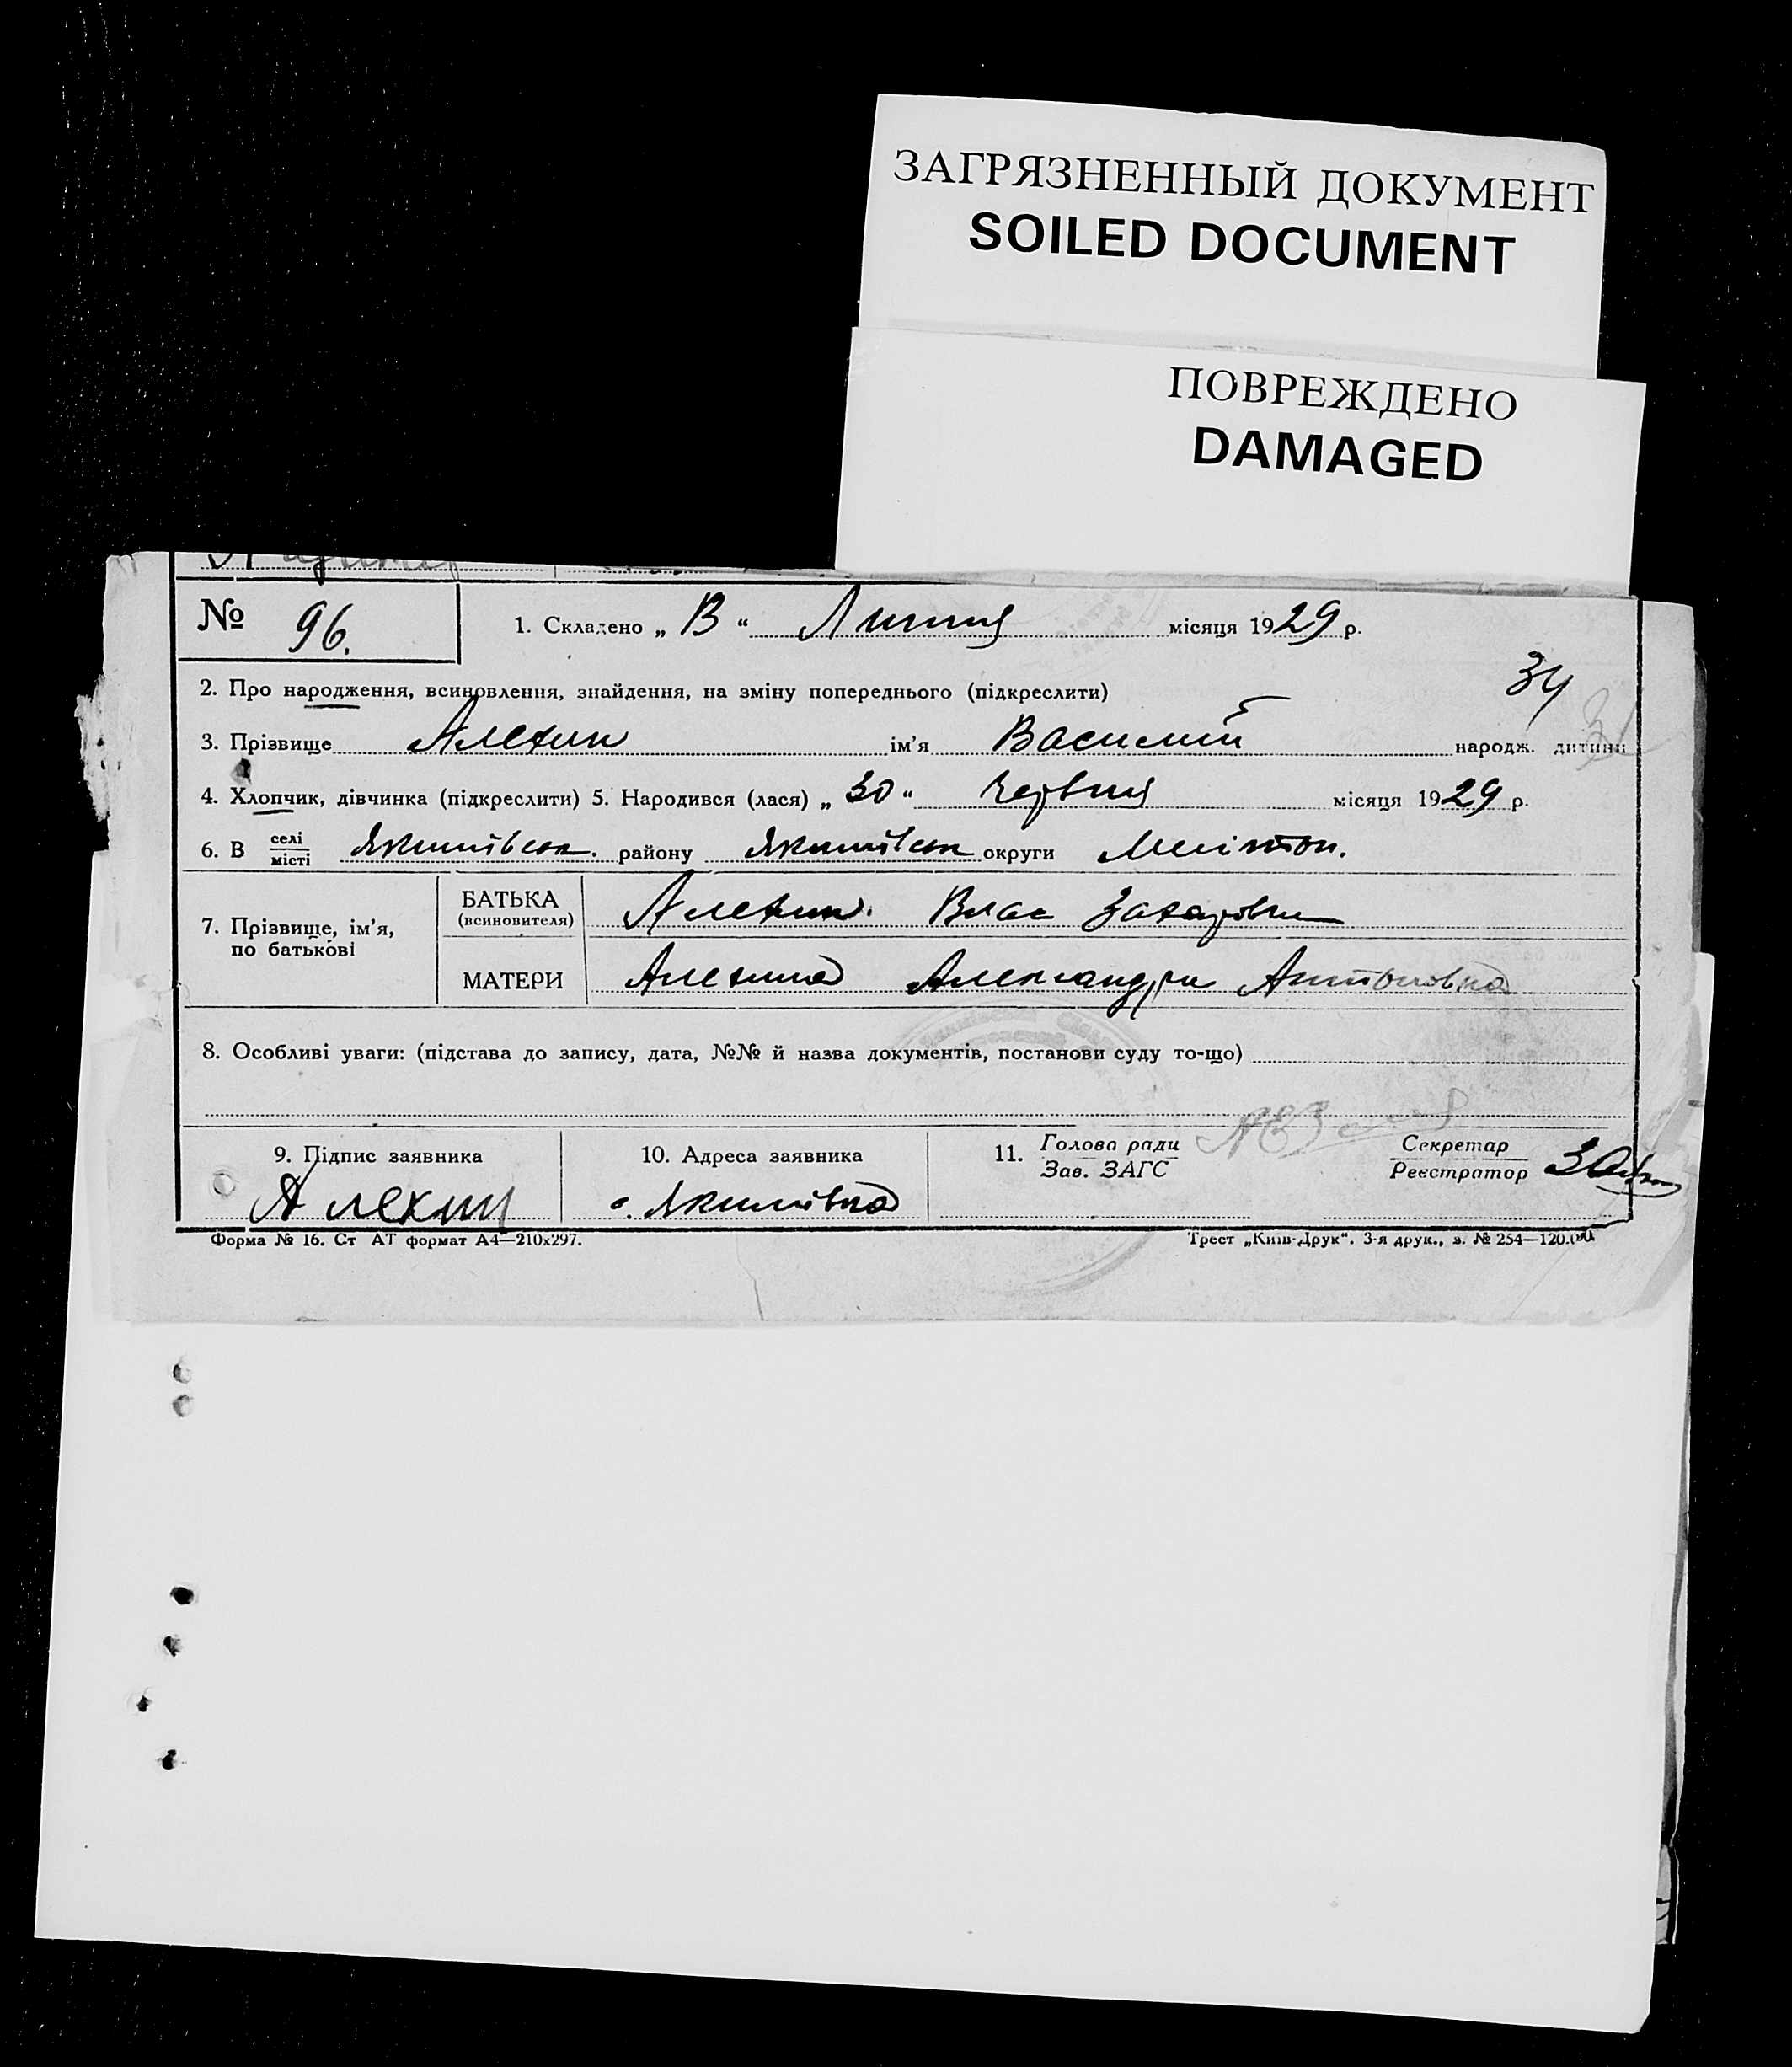 ЗАГРЯЗНЕННЫЙ ДОКУМЕНТ
SOILED DOCUMENT
ПОВРЕЖДЕНО
DAMAGED
№ 96.
1. Складено „ В “ Липня місяця 1929 р.
2. Про народження, всиновлення, знайдення, на зміну попереднього (підкреслити)
34
3. Прізвище Алехин ім'я Василий народж. дитини
4. Хлопчик, дівчинка (підкреслити) 5. Народився (лася) „ 30 “ Червня місяця 1929 р.
6. В селі місті Якимівськ. району Якимівськ округи Меліт
7. Прізвище, ім'я, по батькові
БАТЬКА (всиновителя) Алехин. Влас Захарович
МАТЕРИ Алехина Александра Антоновна
8. Особливі уваги: (підстава до запису, дата, №№ й назва документів, постанови суду то-що)
9. Підпис заявника
Алехин
10. Адреса заявника
с. Якимівка
11. Голова ради
Зав. ЗАГС
Секретар
Реєстратор
Форма № 16. Ст АТ формат А4—210х297.
Трест „Київ-Друк“. 3-я друк., з. № 254—120.000.